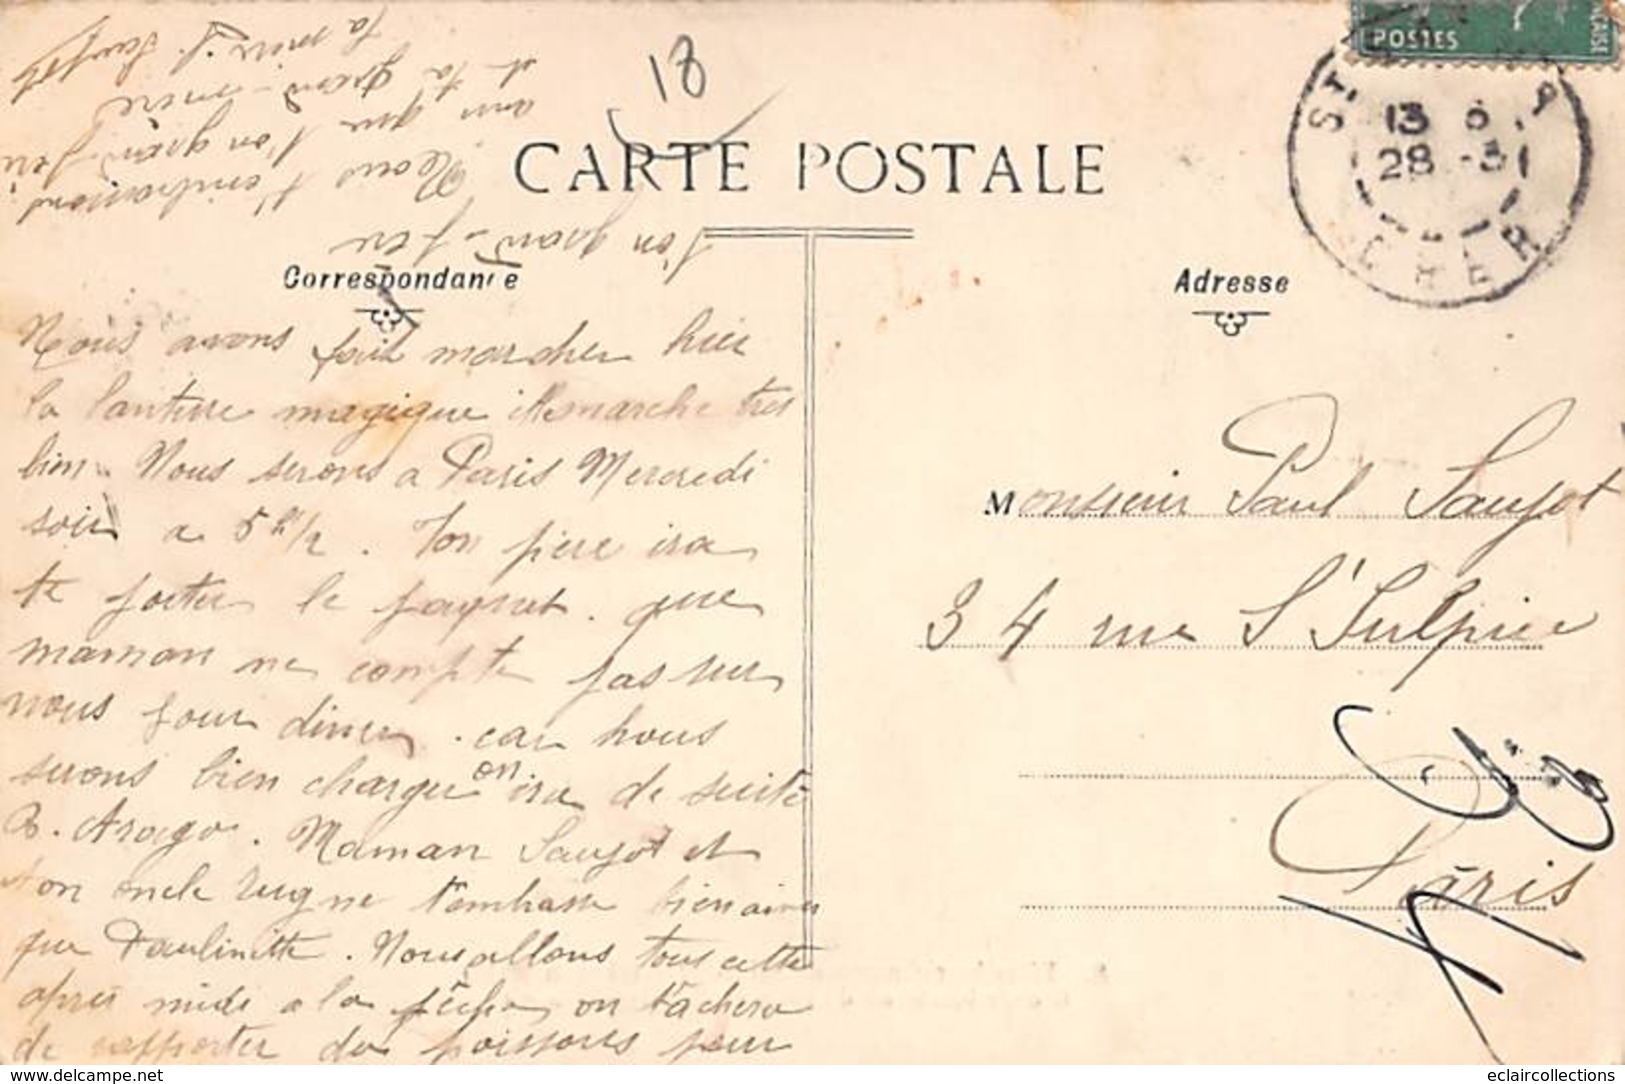 18
POSTES
CARTE POSTALE
13
28 -3
CHER
Correspondance
Adresse
Nous avons fait marcher hier
la lanterne magique elle marche très
bien. Nous serons a Paris Mercredi
soir a 5 h 1/2. Ton père ira
te porter le paquet. que
maman ne compte pas sur
nous pour diner. car nous
serons bien charger on ira de suite
B. Arago. Maman Saujot et
ton oncle t'embrasse bien ainsi
que Paulinette. Nous allons tous cette
après midi a la pêche on tâchera
de rapporter des poissons pour
ton grand-père
Nous t'embrassons
ainsi que ton grand-père
et ta grand-mère
Ta mère J. Saujot
Monsieur Paul Saujot
34 rue St Sulpice
Paris
www.delcampe.net
eclaircollections